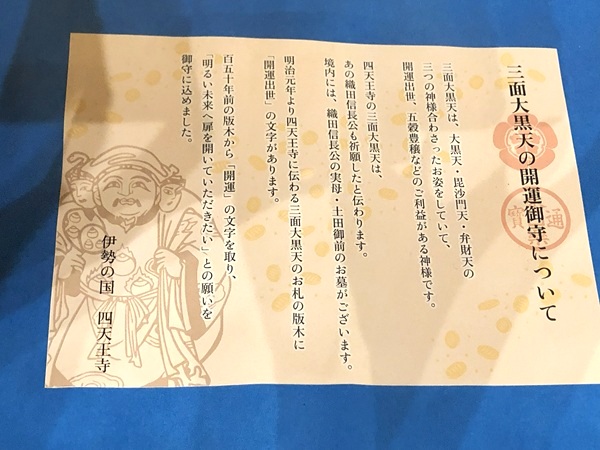 三面大黒天の開運御守について
三面大黒天は、大黒天・毘沙門天・弁財天の
三つの神様合わさったお姿をしていて、
開運出世、五穀豊穣などのご利益がある神様です。
四天王寺の三面大黒天は、
あの織田信長公も祈願したと伝わります。
境内には、織田信長公の実母・土田御前のお墓がございます。
明治元年より四天王寺に伝わる三面大黒天のお札の版木に
「開運出世」の文字があります。
百五十年前の版木から「開運」の文字を取り、
「明るい未来へ扉を開いていただきたい」との願いを
御守に込めました。
伊勢の国　四天王寺